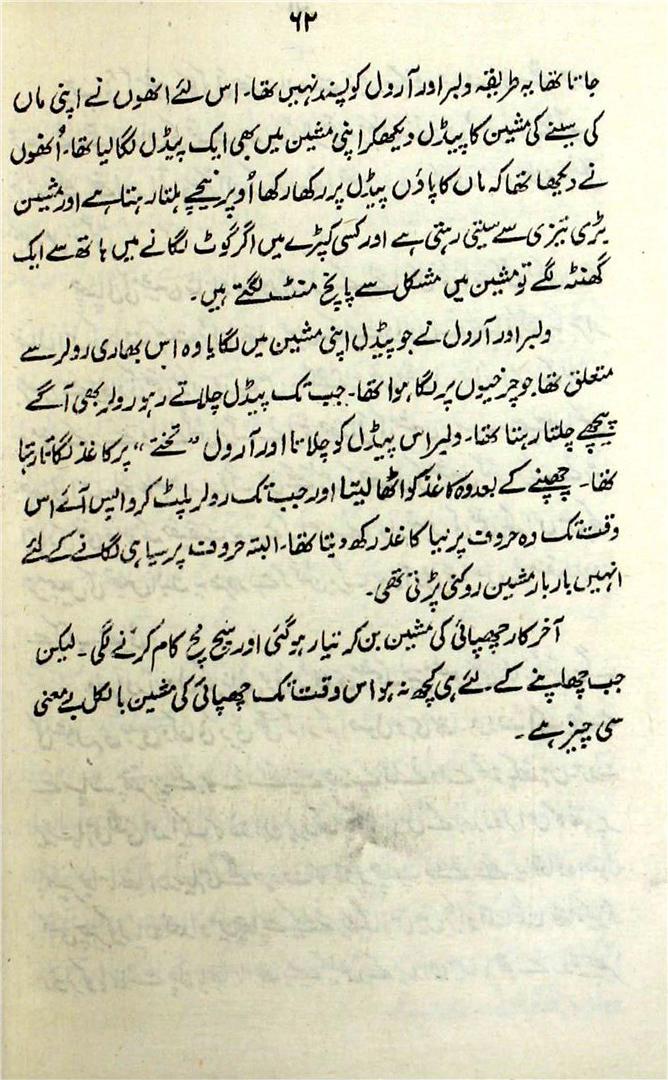 ۶۲
جاتا تھا یہ طریقہ ولبر اور آرول کو پسند نہیں تھا۔ اس لئے انھوں نے اپنی ماں
کی سینے کی مشین کا پیڈل دیکھکر اپنی مشین میں بھی ایک پیڈل لگا لیا تھا۔ اُنھوں
نے دیکھا تھا کہ ماں کا پاؤں پیڈل پر رکھا رکھا اُوپر نیچے ہلتا رہتا ہے اور مشین
بڑی تیزی سے سیتی رہتی ہے اور کسی کپڑے میں اگر گوٹ لگانے میں ہاتھ سے ایک
گھنٹہ لگے تو مشین میں مشکل سے پانچ منٹ لگتے ہیں۔
ولبر اور آرول نے جو پیڈل اپنی مشین میں لگایا وہ اس بھاری رولر سے
متعلق تھا جو چرخیوں پر لگا ہوا تھا۔ جب تک پیڈل چلاتے رہو رولر بھی آگے
پیچھے چلتا رہتا تھا۔ ولبر اس پیڈل کو چلاتا اور آرول "تختے" پر کاغذ لگاتا رہتا
تھا۔ چھپنے کے بعد وہ کاغذ کو اٹھا لیتا اور جب تک رولر پلٹ کر واپس آئے اس
وقت تک وہ حروف پر نیا کاغذ رکھ دیتا تھا۔ البتہ حروف پر سیاہی لگانے کے لئے
انہیں بار بار مشین روکنی پڑتی تھی۔
آخر کار چھپائی کی مشین بن کر تیار ہو گئی اور سچ مچ کام کرنے لگی۔ لیکن
جب چھاپنے کے لئے ہی کچھ نہ ہو اس وقت تک چھپائی کی مشین بالکل بے معنی
سی چیز ہے۔